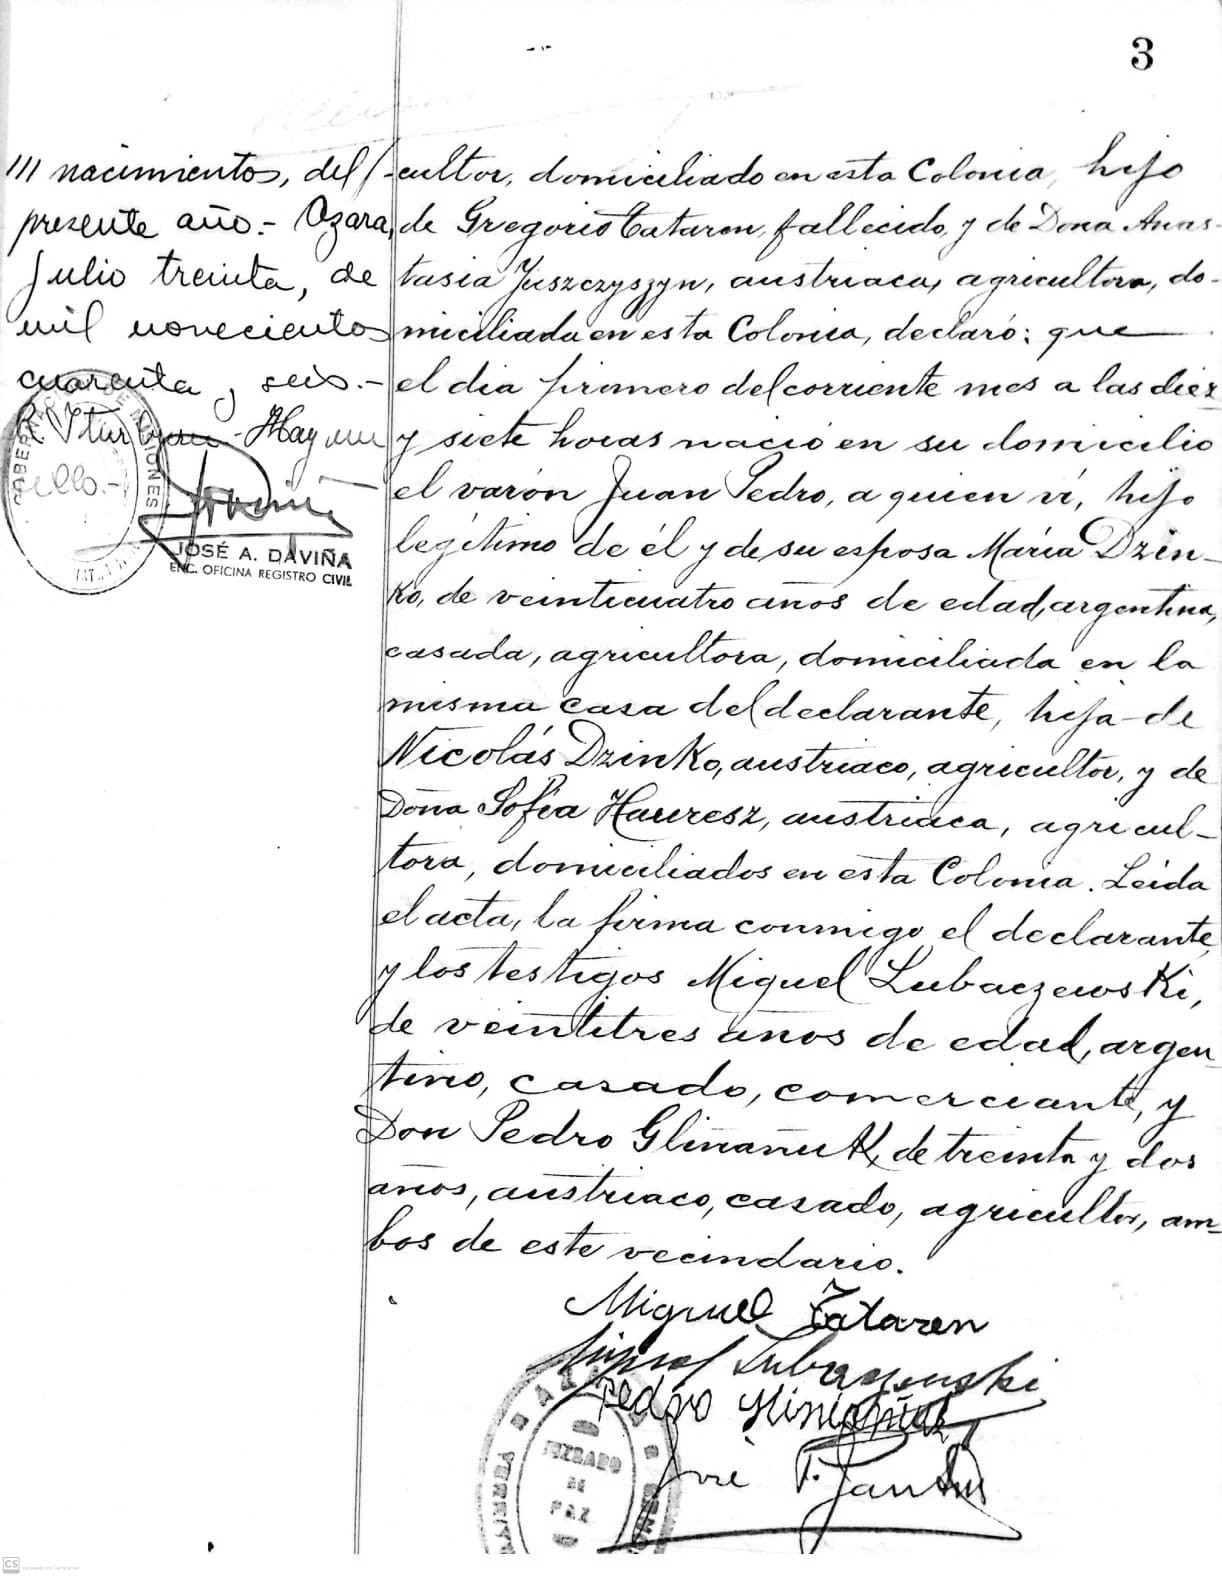 3
III nacimientos, del
presente año.- Azara,
Julio treinta, de
mil novecientos
cuarenta y seis.-
GOBERNACION DE MISIONES
JOSÉ A. DAVIÑA
ENC. OFICINA REGISTRO CIVIL
cultor, domiciliado en esta Colonia, hijo
de Gregorio Tataren, fallecido, y de Dona Anas-
tasia Juszczyszyn, austriaca, agricultora, do-
miciliada en esta Colonia, declaró: que
el dia primero del corriente mes a las diez
y siete horas nació en su domicilio
el varón Juan Pedro, a quien ví, hijo
legítimo de él y de su esposa María Dzin-
ko, de veinticuatro años de edad, argentina,
casada, agricultora, domiciliada en la
misma casa del declarante, hija de
Nicolás Dzinko, austriaco, agricultor, y de
Doña Sofía Hauresz, austriaca, agricul-
tora, domiciliados en esta Colonia. Leída
el acta, la firma conmigo el declarante,
y los testigos Miguel Lubaczewski,
de veintitres años de edad, argen-
tino, casado, comerciante, y
Don Pedro Gliñañuk, de treinta y dos
años, austriaco, casado, agricultor, am-
bos de este vecindario.
Miguel Tataren
Miguel Lubaczewski
Pedro
José P.
JUZGADO
DE
PAZ
CS